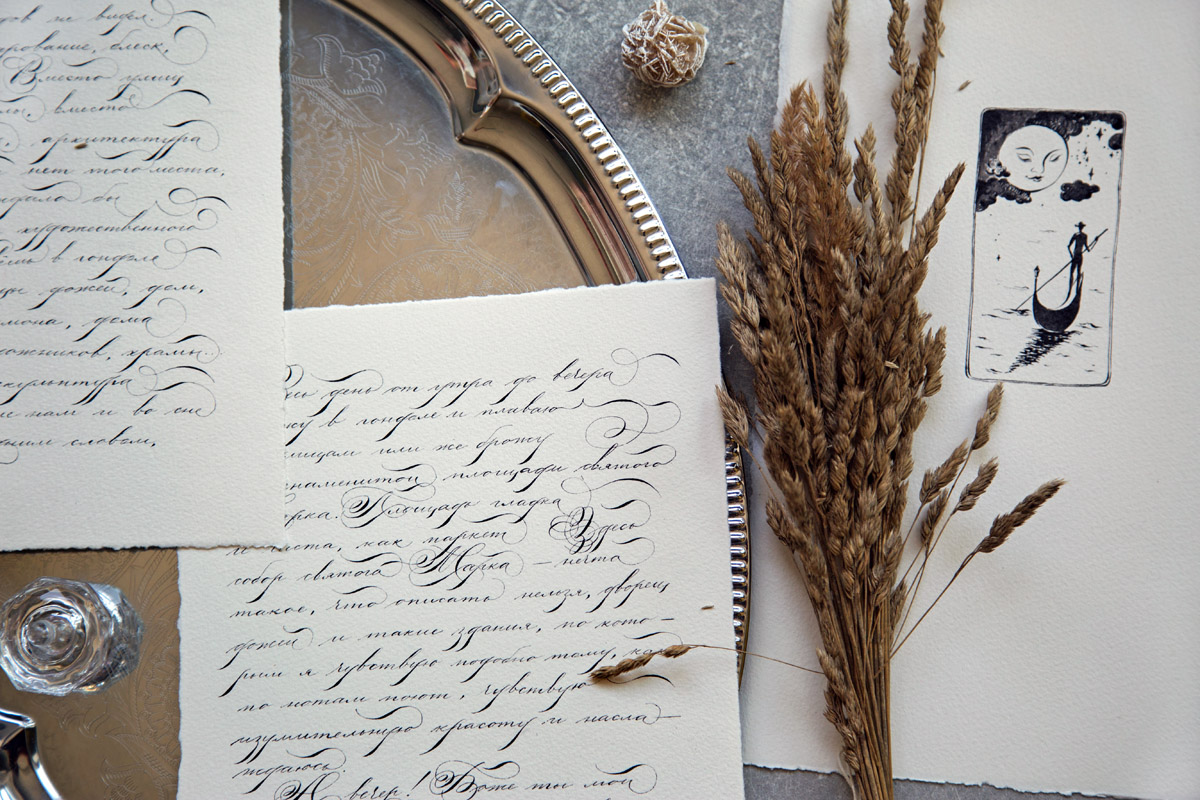 ров не видел.
рование, блеск,
Вместо улиц
вместо
архитектура
нет того места,
бы
художественного
в гондоле
дожей, дом,
мона, дома
ожников, храмы.
скульптура
нам и во сне
словом,
день от утра до вечера
в гондоле и плаваю
улицам или же брожу
знаменитой площади святого
рка. Площадь гладка
и чиста, как паркет Здесь
собор святого Марка — нечто
такое, что описать нельзя, дворец
дожей и такие здания, по кото—
рым я чувствую подобно тому, как
по нотам поют, чувствую
изумительную красоту и насла—
ждаюсь.
А вечер! Боже ты мой